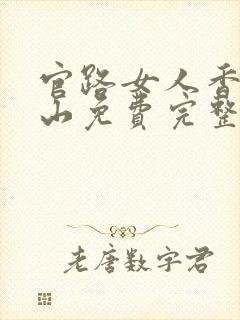 官路女人香
山免费完整
老唐数字君